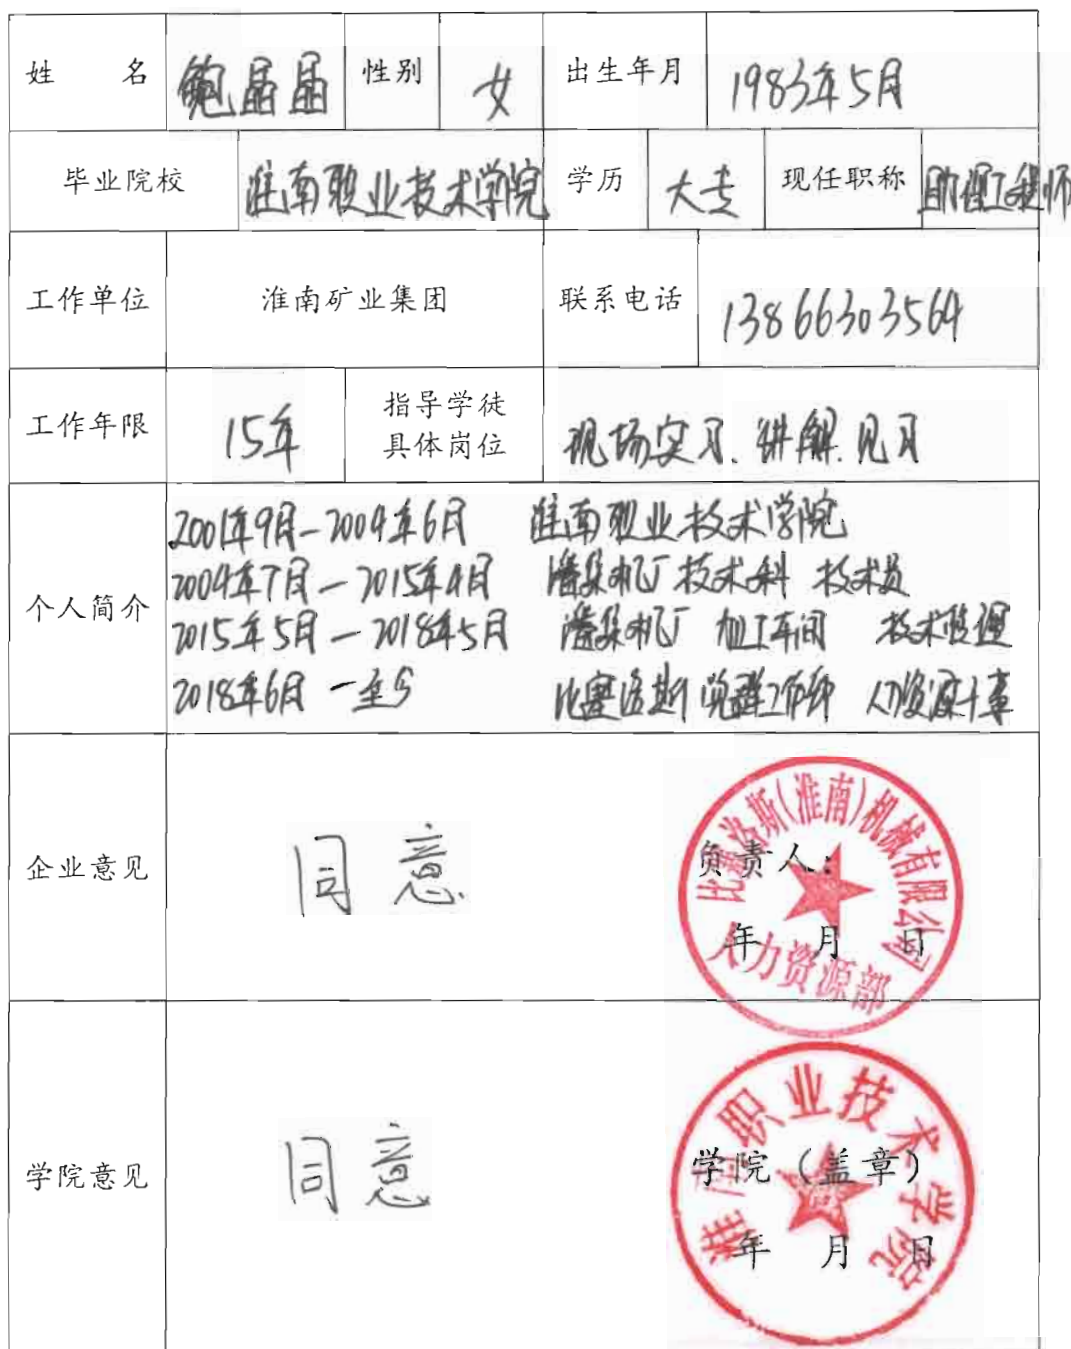 姓 名 鲍晶晶 性别 女 出生年月 1983年5月
毕业院校 淮南职业技术学院 学历 大专 现任职称 助理工程师
工作单位 淮南矿业集团 联系电话 13866303564
工作年限 15年 指导学徒
具体岗位 现场实习、讲解、见习
2001年9月-2004年6月 淮南职业技术学院
2004年7月-2015年4月 潘集机厂 技术科 技术员
个人简介
2015年5月-2018年5月 潘集机厂 加工车间 技术经理
2018年6月-至今 比塞洛斯 党群工作部 人力资源干事
企业意见 同意 负责人:
年 月 日
比塞洛斯(淮南)机械有限公司
人力资源部
学院意见 同意 学院(盖章)
年 月 日
淮南职业技术学院